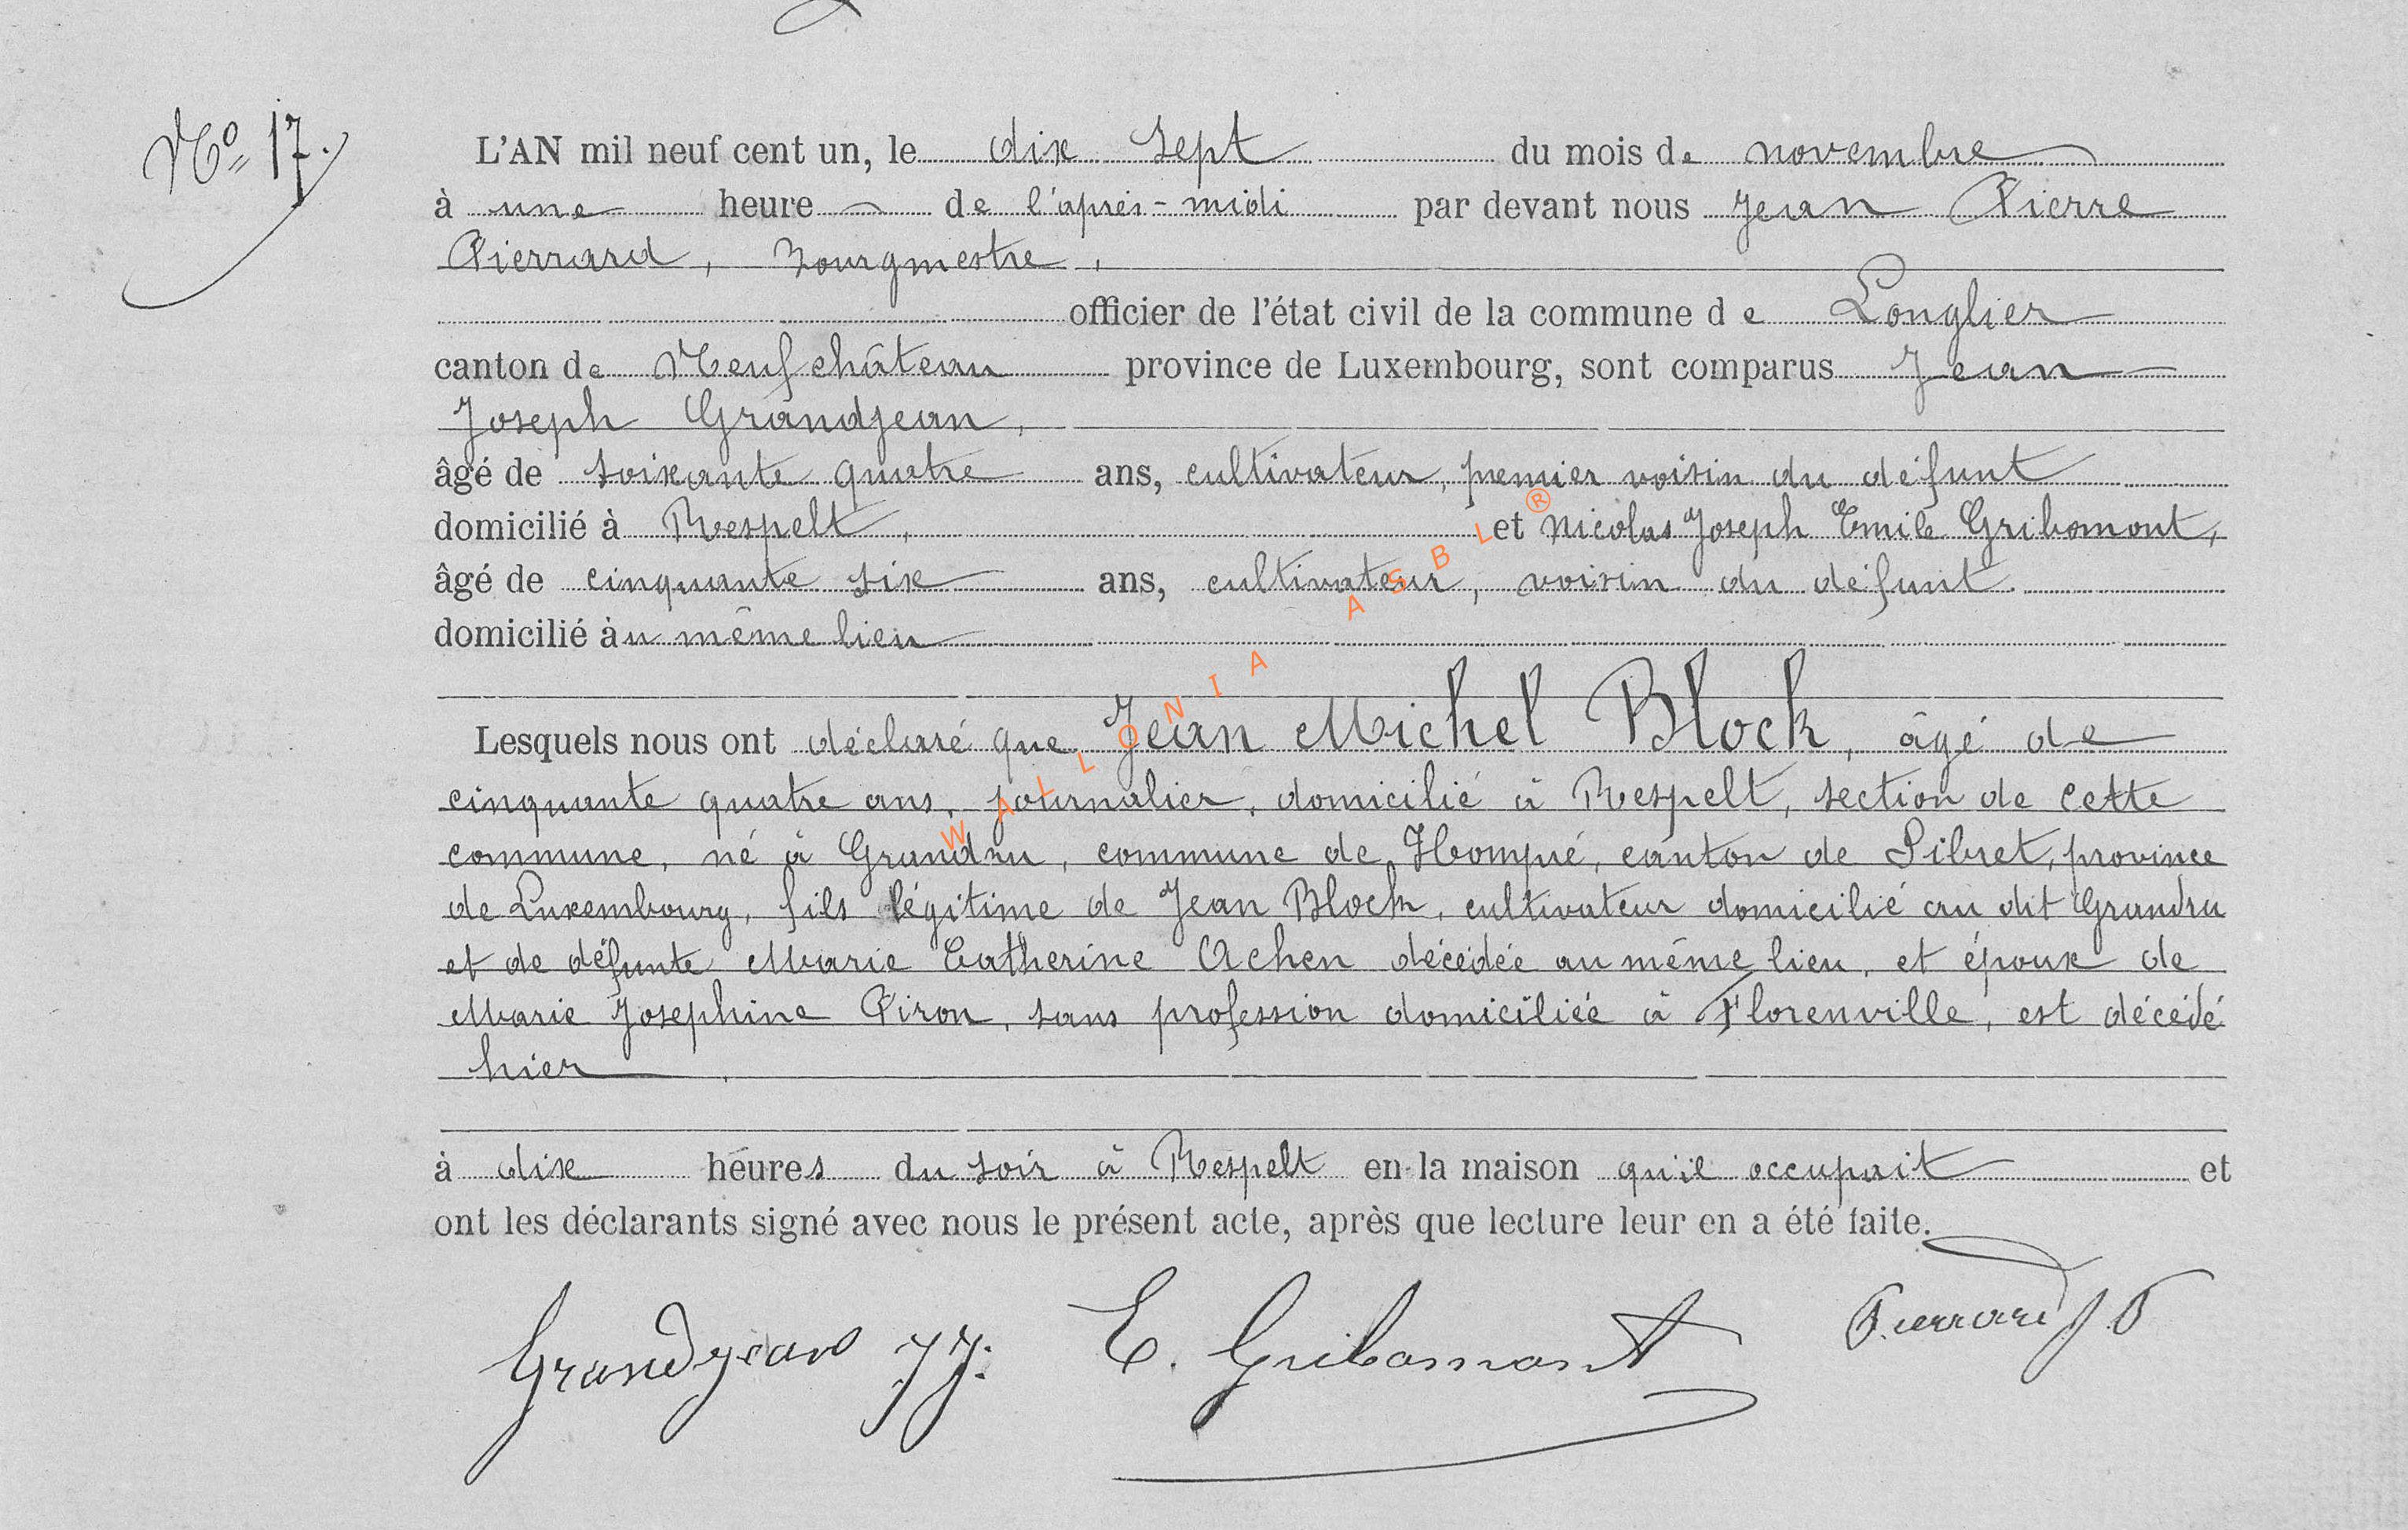 Nº 17.
L'AN mil neuf cent un, le dix sept du mois de novembre
à une heure de l'après-midi par devant nous Jean Pierre
Pierrard, Bourgmestre,
officier de l'état civil de la commune de Longlier
canton de Neufchâteau province de Luxembourg, sont comparus Jean
Joseph Grandjean,
âgé de soixante quatre ans, cultivateur, premier voisin du défunt
domicilié à Respelt, et Nicolas Joseph Emile Gribomont,
âgé de cinquante six ans, cultivateur, voisin du défunt
domicilié au même lieu
Lesquels nous ont déclaré que Jean Michel Block, âgé de
cinquante quatre ans, journalier, domicilié à Respelt, section de cette
commune, né à Grandru, commune de Hompré, canton de Sibret, province
de Luxembourg, fils légitime de Jean Block, cultivateur domicilié au dit Grandru
et de défunte Marie Catherine Achen décédée au même lieu, et époux de
Marie Josephine Piron, sans profession domiciliée à Florenville, est décédé
hier
à dix heures du soir à Respelt en la maison qu'il occupait et
ont les déclarants signé avec nous le présent acte, après que lecture leur en a été faite.
Grandjean JJ. E. Gribomont Pierrard J P
WALLONIA ASBL ®